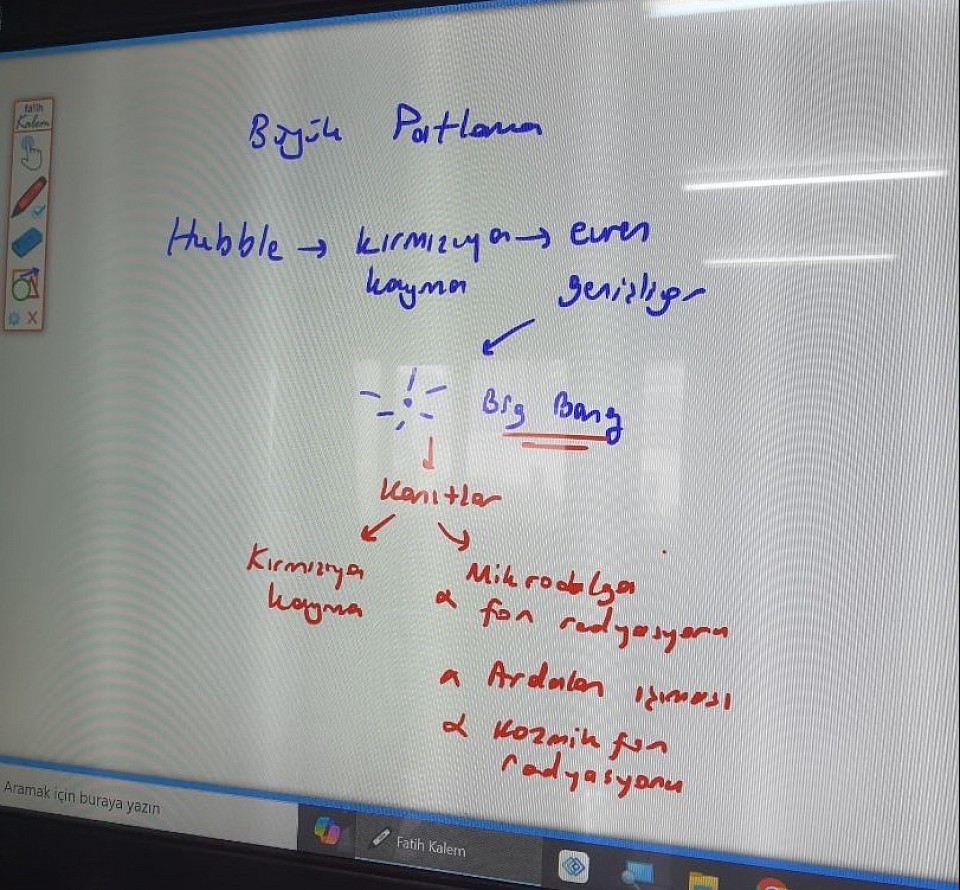 fatih
Kalem
Büyük Patlama
Hubble → kırmızıya → evren
kayma genişliyor
Big Bang
Kanıtlar
Kırmızıya
kayma
Mikrodalga
fon radyasyonu
Ardalan ışıması
Kozmik fon
radyasyonu
Aramak için buraya yazın
Fatih Kalem